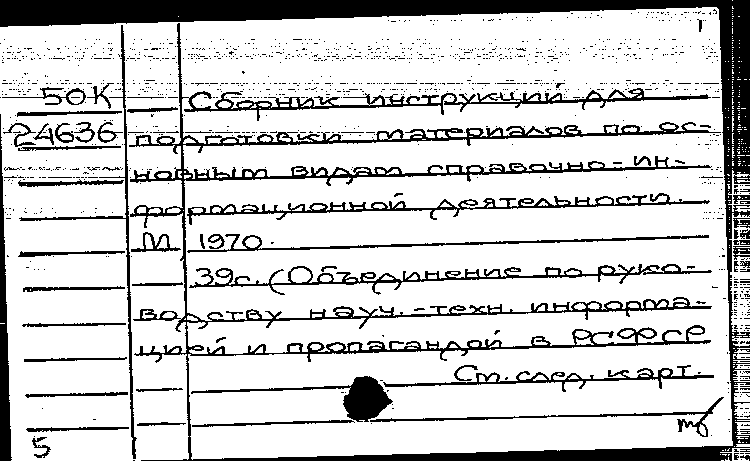 1
50К Сборник инструкций для
24636 подготовки материалов по ос-
новным видам справочно-ин-
формационной деятельности.
М 1970.
39с. (Объединение по руко-
водству науч.-техн. информа-
цией и пропагандой в РСФСР
См. след. карт.
5